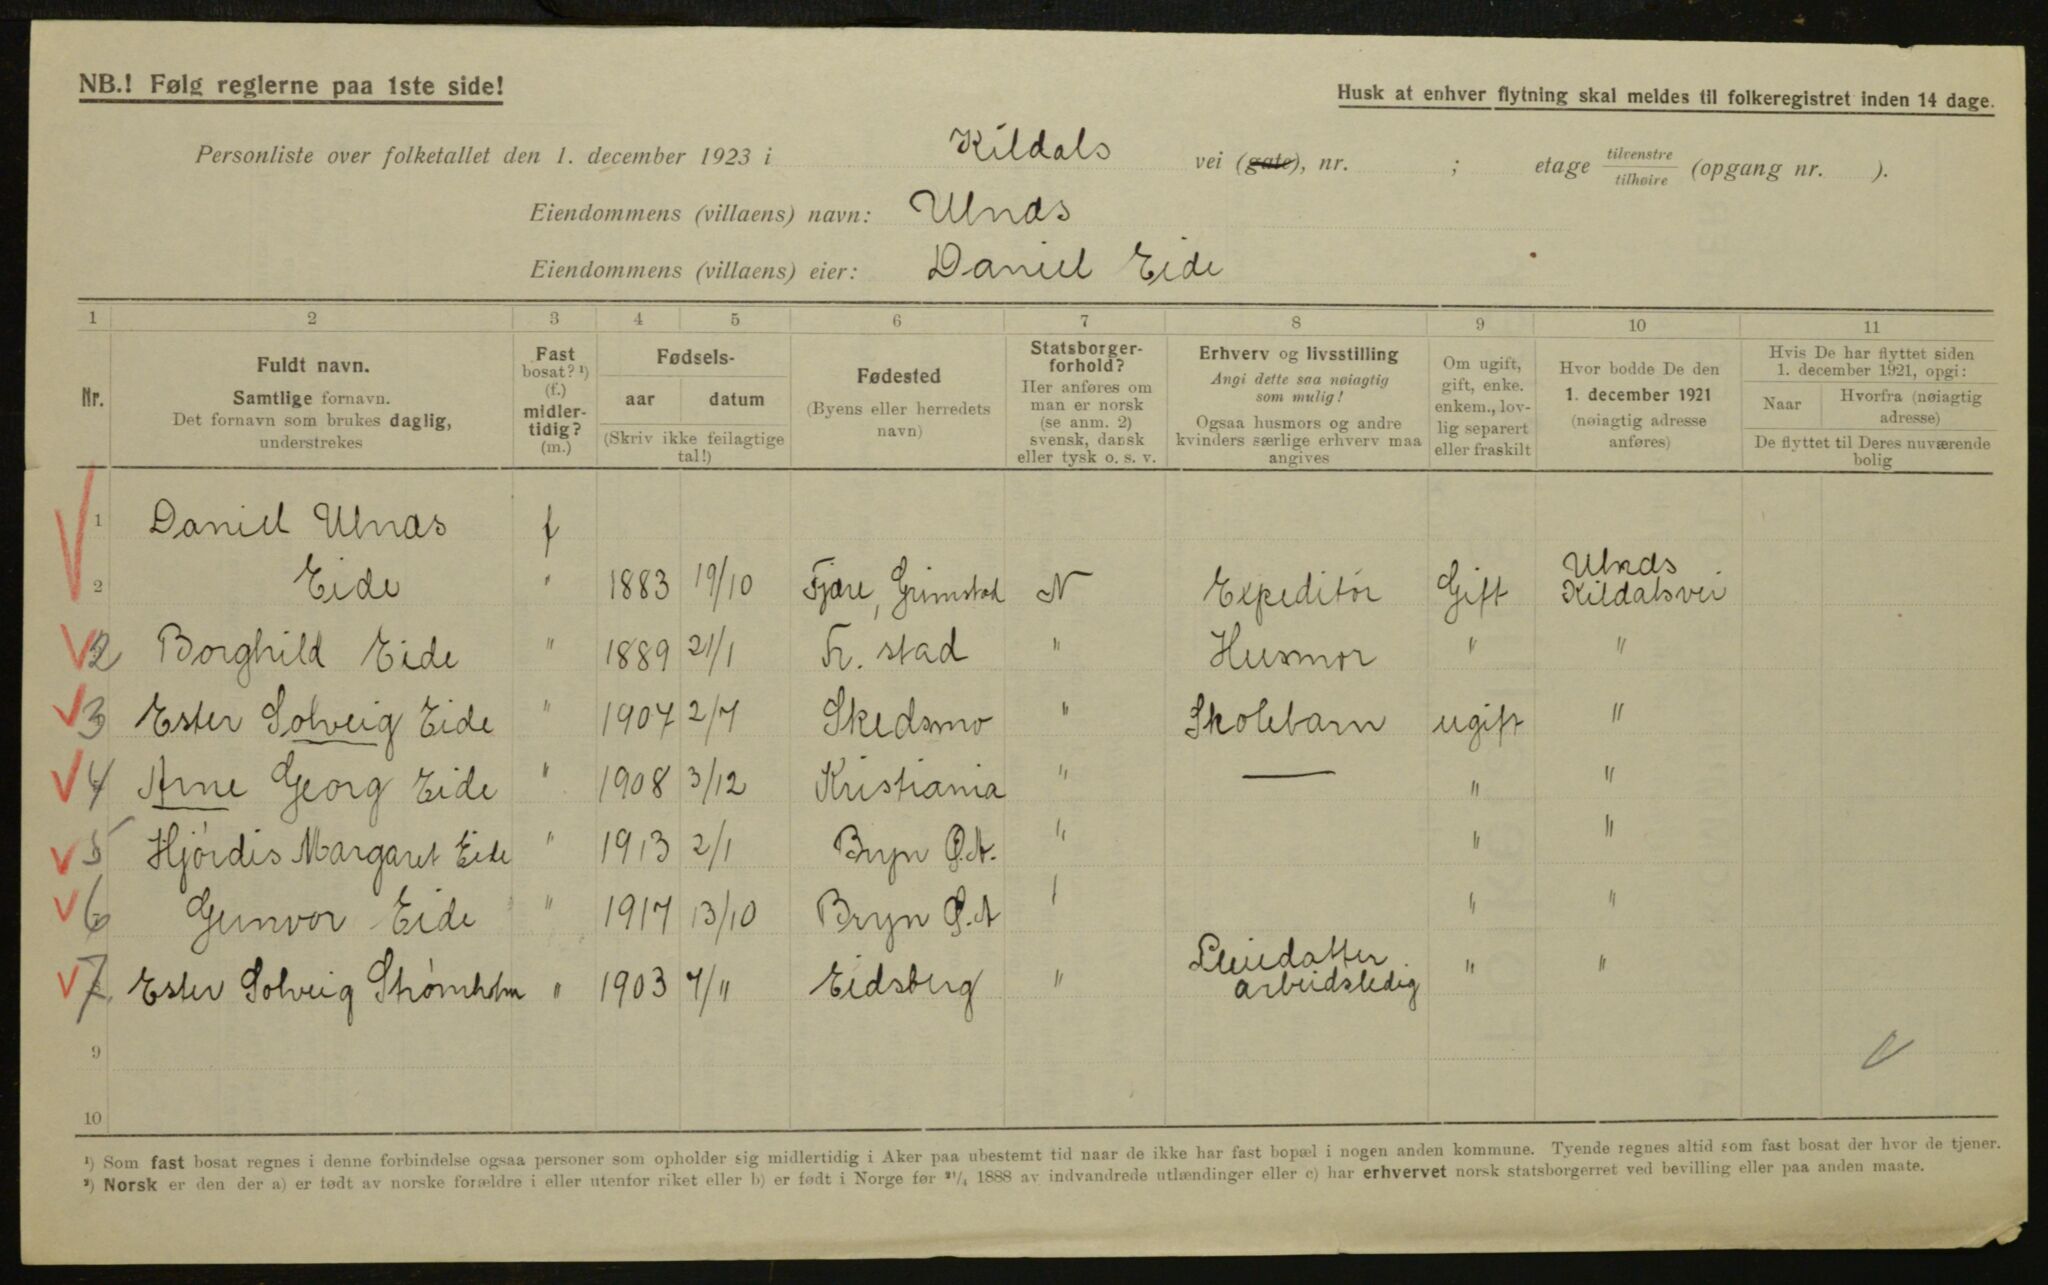 NB.! Følg reglerne paa 1ste side!
Husk at enhver flytning skal meldes til folkeregistret inden 14 dage.
Personliste over folketallet den 1. december 1923 i Kildals vei (gate), nr. ; etage tilvenstre / tilhøire (opgang nr. ).
Eiendommens (villaens) navn: Ulnæs
Eiendommens (villaens) eier: Daniel Eide
1 2 3 4 5 6 7 8 9 10 11
Nr.
Fuldt navn.
Samtlige fornavn.
Det fornavn som brukes daglig,
understrekes
Fast
bosat? ¹)
(f.)
midler-
tidig?
(m.)
Fødsels-
aar datum
(Skriv ikke feilagtige
tal!)
Fødested
(Byens eller herredets
navn)
Statsborger-
forhold?
Her anføres om
man er norsk
(se anm. 2)
svensk, dansk
eller tysk o. s. v.
Erhverv og livsstilling
Angi dette saa nøiagtig
som mulig!
Ogsaa husmors og andre
kvinders særlige erhverv maa
angives
Om ugift,
gift, enke.
enkem., lov-
lig separert
eller fraskilt
Hvor bodde De den
1. december 1921
(nøiagtig adresse
anføres)
Hvis De har flyttet siden
1. december 1921, opgi:
Naar Hvorfra (nøiagtig
adresse)
De flyttet til Deres nuværende
bolig
1 Daniel Ulnæs f
Ulnæs
2 Eide " 1883 19/10 Fjære, Grimstad N Expeditør Gift Kildalsvei
2 Borghild Eide " 1889 21/1 Fr. stad " Husmor " "
3 Ester Solveig Eide " 1907 2/7 Skedsmo " Skolebarn ugift "
4 Arne Georg Eide " 1908 3/12 Kristiania " — " "
5 Hjørdis Margaret Eide " 1913 2/1 Bryn Ø.A. " " "
6 Gunvor Eide " 1917 13/10 Bryn Ø.A " "
Pleiedatter
7 Ester Solveig Strømholm " 1903 7/11 Eidsberg " arbeidsledig " "
9
10
¹) Som fast bosat regnes i denne forbindelse ogsaa personer som opholder sig midlertidig i Aker paa ubestemt tid naar de ikke har fast bopæl i nogen anden kommune. Tyende regnes altid som fast bosat der hvor de tjener.
²) Norsk er den der a) er født av norske forældre i eller utenfor riket eller b) er født i Norge før ²¹/₄ 1888 av indvandrede utlændinger eller c) har erhvervet norsk statsborgerret ved bevilling eller paa anden maate.